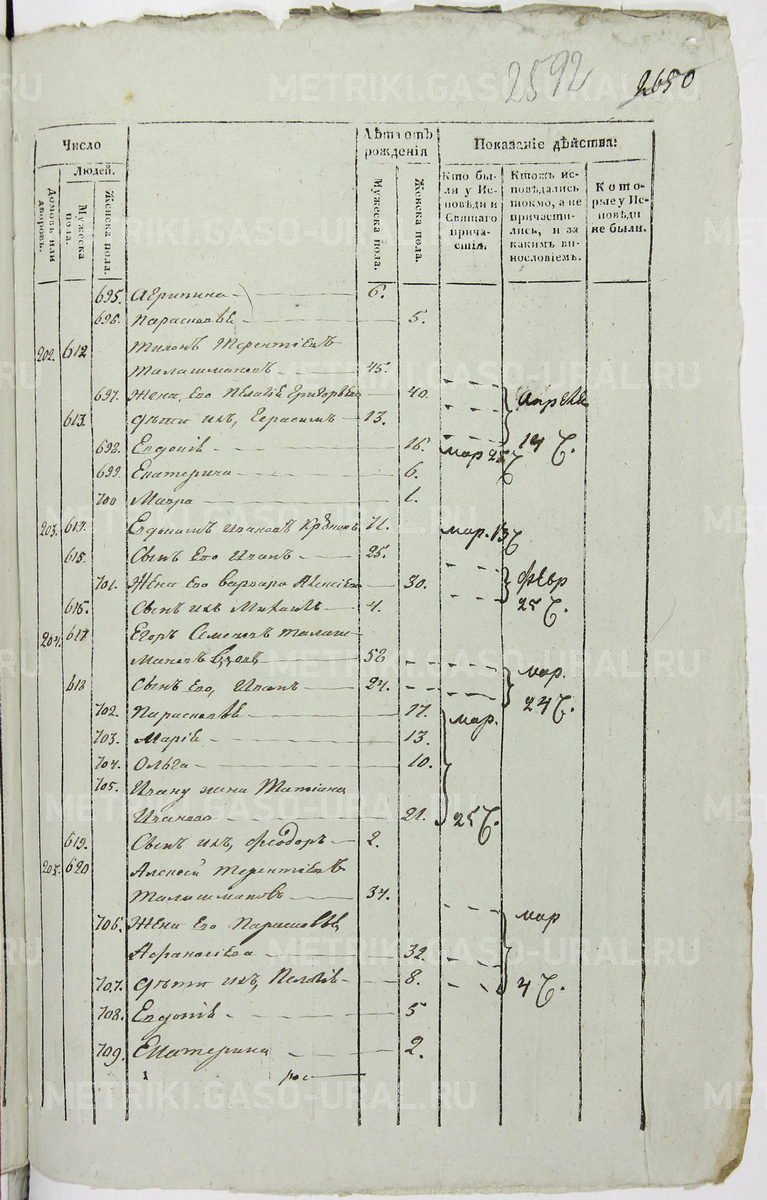 2592 2650
Число
Людей.
Домовъ или дворовъ.
Мужеска пола.
Женска пола.
Лѣта отъ рожденія
Мужеска пола.
Женска пола.
Показаніе дѣйства:
Кто были у Исповѣди и Святаго причастія.
Ктожъ исповѣдались токмо, а не причастились, и за какимъ винословіемъ.
Которые у Исповѣди не были.
695. Агрипина 6.
696. Параскева 5.
202. 612 Тихонъ Терентіевъ
Талашмановъ 45.
697. Жена Его Пелагія Григорьева 40. Апреля
613. дѣти ихъ, Герасимъ 13.
698. Евдокія 16. мар 25 14
699. Екатерина 6.
700 Мавра 1.
203. 614. Евдокимъ Ивановъ 71. мар. 13
615. Сынъ Его Иванъ 25.
701. Жена Его Варвара Алексіева 30. февр
616. Сынъ ихъ Михаилъ 4. 25
204. 617 Егоръ Семеновъ Талаш
мановъ 52
618 Сынъ Его, Иванъ 24. мар. 24
702. Параскева 17. мар.
703. Марія 13.
704. Ольга 10.
705. Ивану жена Татіана
Иванова 21. 25
619. Сынъ ихъ, Феодоръ 2.
205. 620 Алексій Терентіевъ
Талашмановъ 34.
706. Жена Его Параскева мар
Афанасіева 32.
707. дѣти ихъ, Пелагія 8. 4
708. Евдокія 5
709. Екатерина 2.
METRIKI.GASO-URAL.RU